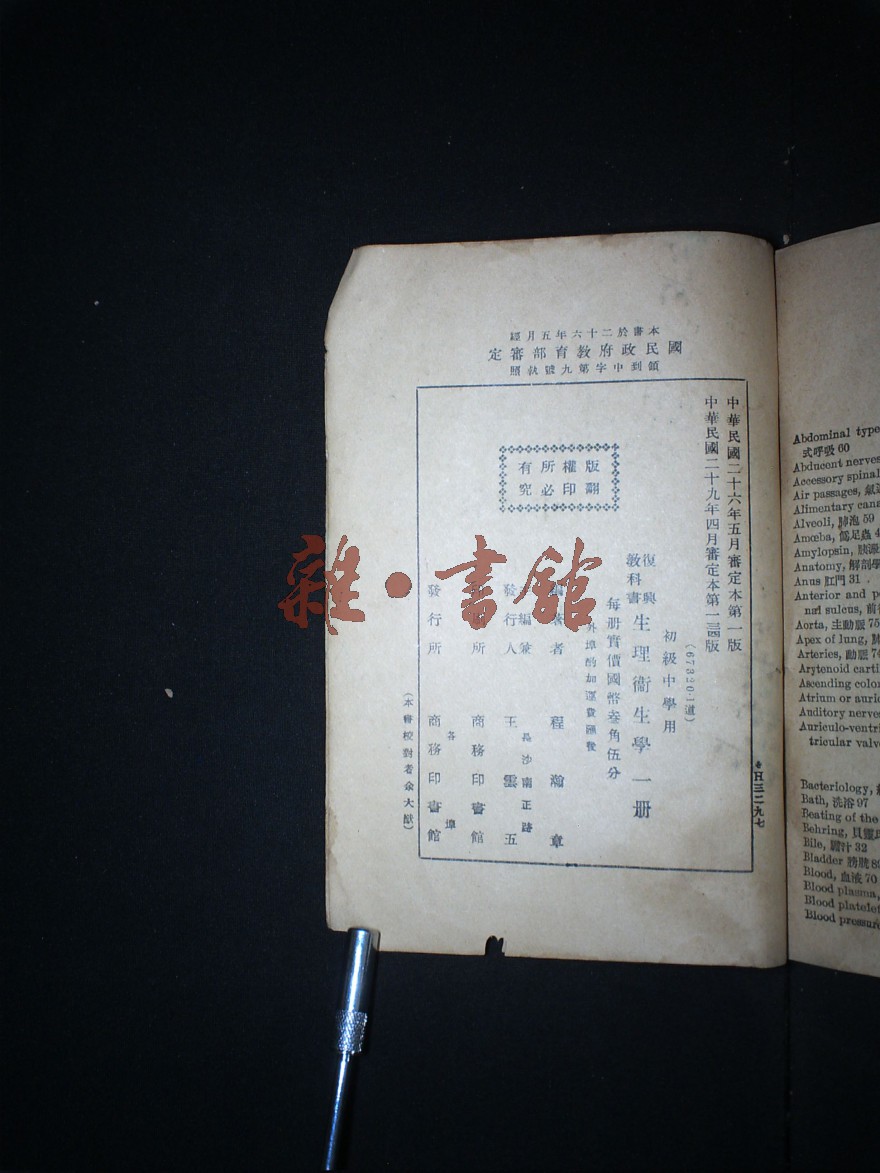 本書於二十六年五月經
國民政府教育部審定
領到中字第九號執照
中華民國二十六年五月審定本第一版
中華民國二十九年四月審定本第一三四版
版權所有
翻印必究
(67320·1道)
初級中學用
復興
教科書
生理衛生學一册
每册實價國幣叁角伍分
外埠酌加運費匯費
者 程瀚章
長沙南正路
發行人 王雲五
所 商務印書館
各埠
發行所 商務印書館
(本書校對者余大猷)
H三二九七
雜·書館
Abdominal type
式呼吸 60
Abducent nerves
Accessory spinal
Air passages,
Alimentary cana
Alveoli, 肺泡 59
Amœba,
Amylopsin,
Anatomy, 解剖學
Anus 肛門 31
Anterior and p
nal sulcus, 前
Aorta, 主動脈 75
Apex of lung, 肺
Arteries, 動脈 74
Arytenoid carti
Ascending colo
Atrium or auric
Auditory nerves
Auriculo-ventri
tricular valv
Bacteriology,
Bath, 洗浴 97
Beating of the
Behring,
Bile, 膽汁 32
Bladder 膀胱
Blood, 血液 70
Blood plasma,
Blood platelet
Blood pressure